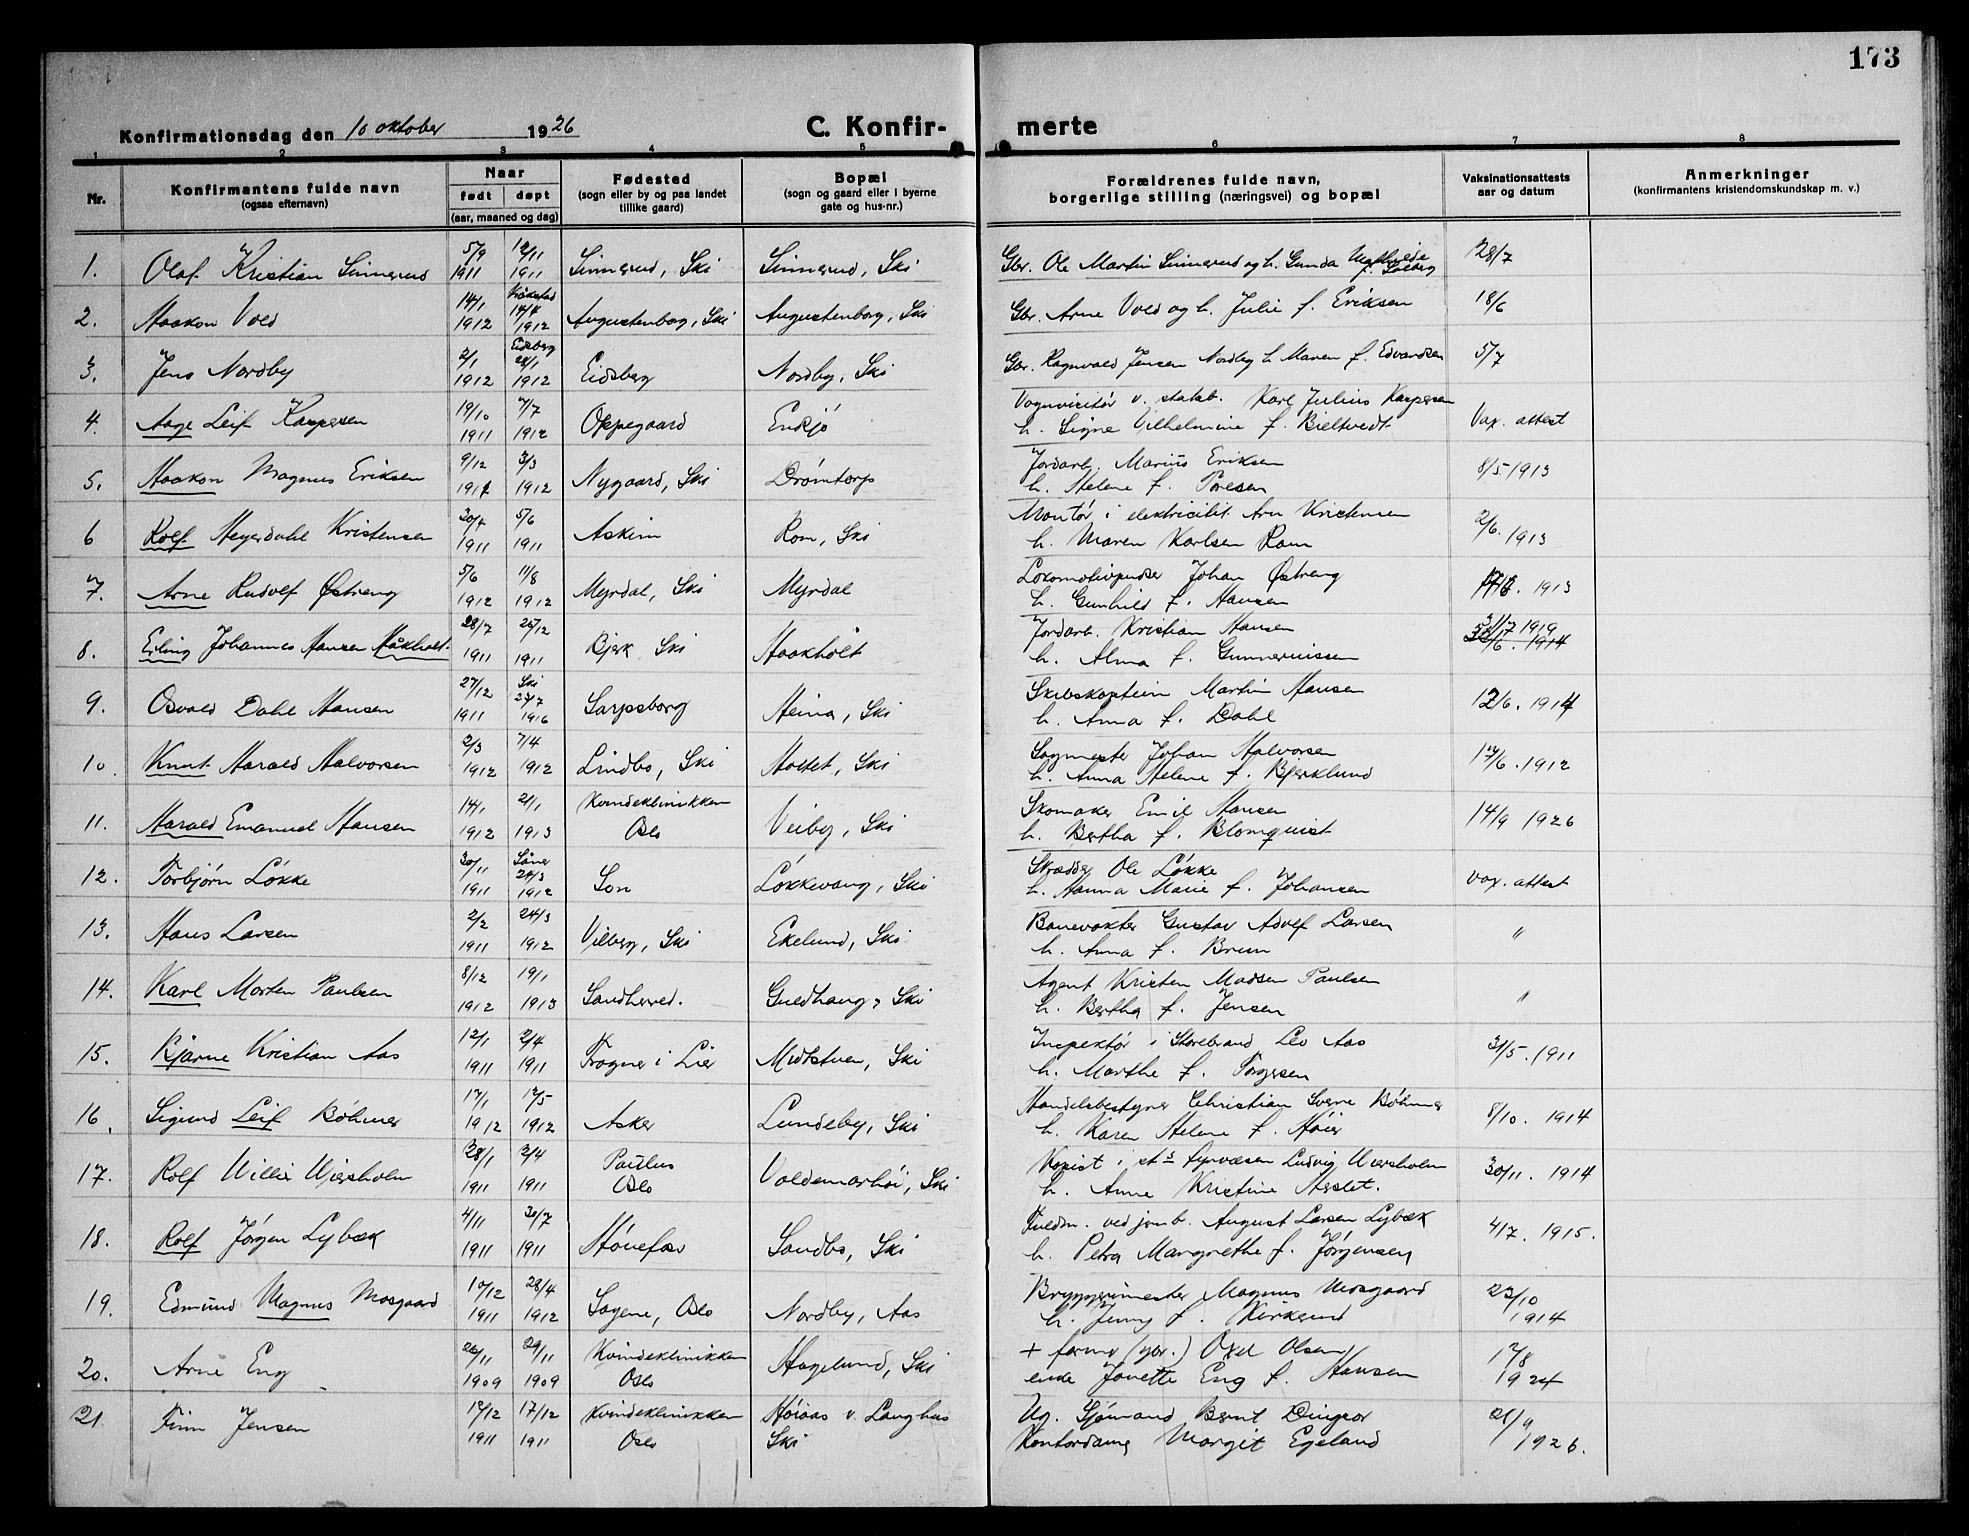 173
Konfirmationsdag den 10 oktober 1926
C. Konfirmerte
1 2 3 4 5 6 7 8
Nr. | Konfirmantens fulde navn (ogsaa efternavn) | Naar født døpt (aar, maaned og dag) | Fødested (sogn eller by og paa landet tillike gaard) | Bopæl (sogn og gaard eller i byerne gate og hus-nr.) | Forældrenes fulde navn, borgerlige stilling (næringsvei) og bopæl | Vaksinationsattests aar og datum | Anmerkninger (konfirmantens kristendomskundskap m. v.)
1. Olaf Kristian Sinnerud 5/9 1911 12/11 1911 Sinnerud, Ski Sinnerud, Ski Gbr. Ole Martin Sinnerud og h. Gunda Mathilde f. Solberg 28/7
2. Haakon Vold 14/1 1912 Kråkstad 14/4 1912 Augustenborg, Ski Augustenborg, Ski Gbr. Arne Vold og h. Julie f. Eriksen 18/6
3. Jens Nordby 2/1 1912 Eidsberg 28/1 1912 Eidsberg Nordby, Ski Gbr. Ragnvald Jensen Nordby h. Maren f. Edvardsen 5/7
4. Aage Leif Kaspersen 19/10 1911 7/7 1912 Oppegaard Endsjø Vognvisitør v. statsb. Karl Julius Kaspersen
h. Signe Vilhelmine f. Bieltvedt Vax. attest
5. Haakon Magnus Eriksen 9/12 1911 3/3 1912 Nygaard, Ski Drømtorp Jordarb. Marius Eriksen
h. Helene f. Toresen 8/5 1913
6 Rolf Heyerdahl Kristensen 30/4 1911 5/6 1911 Askim Rom, Ski Montør i elektricitet Arn Kristensen
h. Maren Karlsen Rom 2/6. 1913
7. Arne Rudolf Østreng 5/6 1912 11/8 1912 Myrdal, Ski Myrdal Lokomotivpudser Johan Østreng
h. Gunhild f. Hansen 1913
8. Erling Johannes Hansen Håkholt. 28/7 1911 26/12 1911 Bjerk Ski Haakholt Jordarb. Kristian Hansen
h. Alma f. Gunneriussen 31/7 1919 1914
9. Osvald Dahl Hansen 27/12 1911 Ski 27/7 1916 Sarpsborg Heina, Ski Skibskaptein Martin Hansen
h. Anna f. Dahl 12/6. 1914
10. Knut Harald Halvorsen 2/3 1912 7/4 1912 Lindbo, Ski Holtet, Ski Sagmester Johan Halvorsen
h. Anna Helene f. Bjørklund 17/6. 1912
11. Harald Emanuel Hansen 14/1 1912 2/1 1913 Kvindeklinikken Oslo Veiby, Ski Skomaker Emil Hansen
h. Bertha f. Blomquist 14/9 1926
12. Torbjørn Løkke 30/11 1911 Såner 24/3 1912 Son Løkkevang, Ski Skrædder Ole Løkke
h. Hanna Marie f. Johansen vax. attest
13. Hans Larsen 2/2 1911 24/3 1912 Vilberg, Ski Ekelund, Ski Banevokter Gustav Adolf Larsen
h. Anna f. Brun "
14. Karl Morten Paulsen 8/12 1912 19/1 1913 Sandherred. Guldhaug, Ski Agent Kristen Madsen Paulsen
h. Bertha f. Jensen "
15. Bjarne Kristian Aas 12/1 1911 2/4 1911 Frogner i Lier Midtstuen, Ski Inspektør i Storebrand Leo Aas
h. Marthe f. Torgersen 31/5. 1911
16. Sigurd Leif Bøhmer 17/1 1912 17/5 1912 Asker Lundeby, Ski Handelsbestyrer Christian Sverre Bøhmer
h. Karen Helene f. Høier 8/10. 1914
17. Rolf Willie Wiersholm 28/1 1911 2/4 1911 Paulus Oslo Valdemarhøi, Ski Kopist i st's fyrvæsen Ludvig Wiersholm
h. Anne Kristine Herslet. 30/11. 1914
18. Rolf Jørgen Lybæk 4/11 1911 30/7 1911 Hønefos Sandbo, Ski Fuldm. ved jernb. August Larsen Lybæk
h. Petra Margrethe f. Jørgensen 4/7. 1915.
19. Edmund Magnus Mosgaard 10/12 1911 28/4 1912 Sagene, Oslo Nordby, Aas Bryggerimester Magnus Mosgaard
h. Jenny f. Kirkerud 23/10 1914
20. Arne Eng 26/11 1909 29/11 1909 Kvindeklinikken Oslo Hagelund, Ski + form. (gbr.) Oxel Olsen
enke Jonette Eng f. Hansen 17/8 1924
21. Finn Jensen 12/12 1911 17/12 1911 Kvindeklinikken Oslo Høiaas v. Langhus Ski Ug. Sjømand Bernt Dingsor
Kontordame Margit Egeland 21/9 1926.